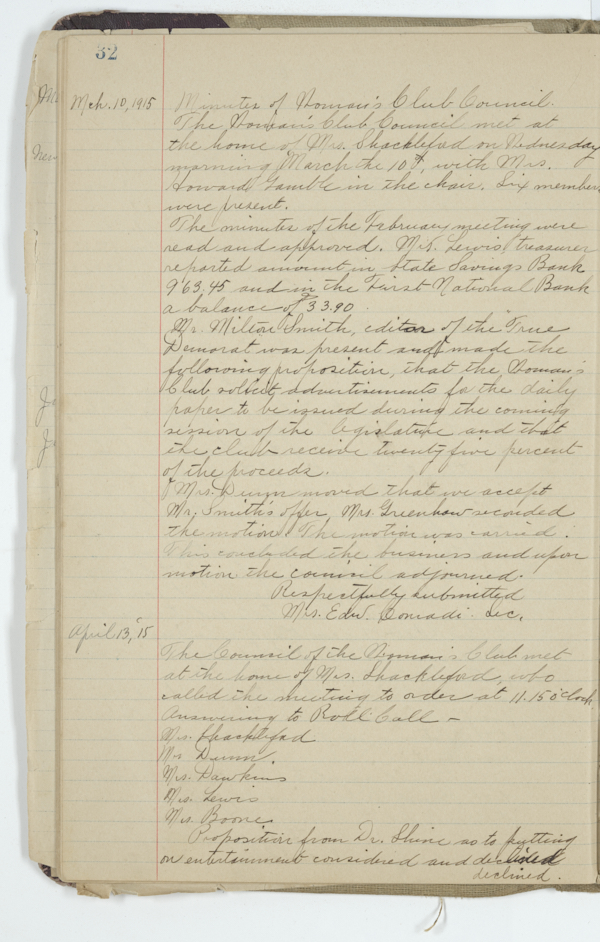 32
Mch. 10, 1915
Minutes of Woman's Club Council.
The Woman's Club Council met at
the home of Mrs. Shackleford on Wednesday
morning March the 10th, with Mrs.
Howard Gamble in the chair. Six members
were present.
The minutes of the February meeting were
read and approved. Mrs. Lewis, treasurer
reported amount in State Savings Bank
963.45 and in the First National Bank
a balance of $33.90.
Mr. Milton Smith, editor of the True
Demorat was present and made the
following proposition, that the Woman's
Club solicit advertisements for the daily
paper to be issued during the coming
session of the legislature and that
the club receive twenty five percent
of the proceeds.
Mrs. Dunn moved that we accept
Mr. Smith's offer, Mrs. Greenhaw seconded
the motion. The motion was carried.
This concluded the business and upon
motion the council adjourned.
Respectfully submitted
Mrs. Edw. Conradi Sec.
April 13, '15
The Council of the Woman's Club met
at the home of Mrs. Shackleford, who
called the meeting to order at 11.15 o'clock.
Answering to Roll Call -
Mrs. Shackleford
Mrs. Dunn.
Mrs. Dawkins
Mrs. Lewis
Mrs. Boone
Proposition from Dr. Shine as to putting
on entertainment considered and declined
declined.